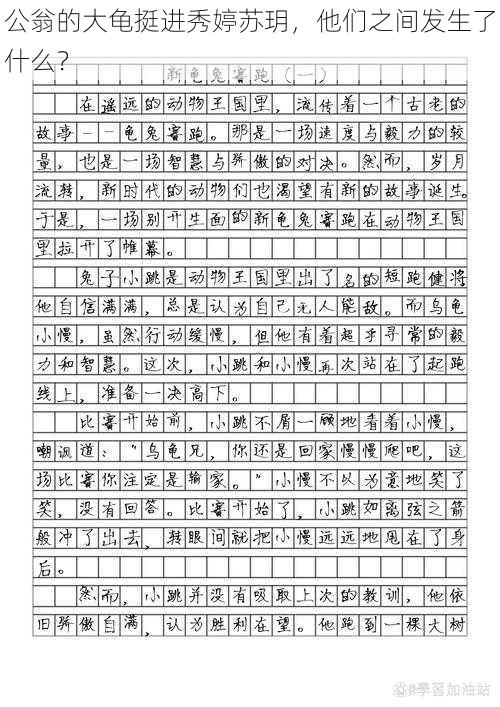 公翁的大龟挺进秀婷苏玥，他们之间发生了
什么？
新龟兔赛跑（一）
在遥远的动物王国里，流传着一个古老的
故事－－龟兔赛跑。那是一场速度与毅力的较
量，也是一场智慧与骄傲的对决。然而，岁月
流转，新时代的动物们也渴望有新的故事诞生。
于是，一场别开生面的新龟兔赛跑在动物王国
里拉开了帷幕。
兔子小跳是动物王国里出了名的短跑健将
他自信满满，总是认为自己无人能敌。而乌龟
小慢，虽然行动缓慢，但他有着超乎寻常的毅
力和智慧。这次，小跳和小慢再次站在了起跑
线上，准备一决高下。
比赛开始前，小跳不屑一顾地看着小慢，
嘲讽道：“乌龟兄，你还是回家慢慢爬吧，这
场比赛你注定是输家。”小慢不以为意地笑了
笑，没有回答。比赛开始了，小跳如离弦之箭
般冲了出去，转眼间就把小慢远远地甩在了身
后。
然而，小跳并没有吸取上次的教训，他依
旧骄傲自满，认为胜利在望。他跑到一棵大树
學習加油站